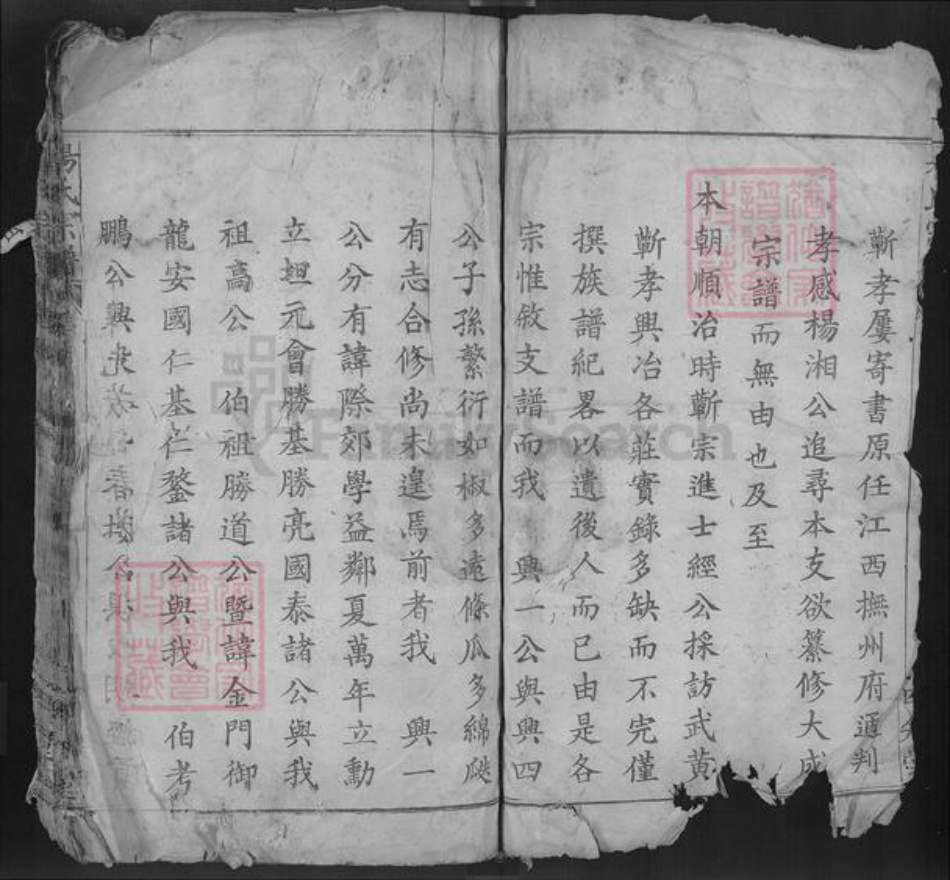 蘄孝屢寄書原任江西撫州府通判
孝感楊湘公追尋本支欲纂修大成
宗譜而無由也及至
本朝順治時蘄宗進士經公採訪武黃
蘄孝興冶各莊實錄多缺而不完僅
撰族譜紀畧以遺後人而已由是各
宗惟敘支譜而我 興一公與興四
公子孫繁衍如椒多遠條瓜多綿瓞
有志合修尚未遑焉前者我 興一
公分有諱際郊學益鄰夏萬年立勳
立坦元會勝基勝亮國泰諸公與我
祖高公 伯祖勝道公暨諱金門御
龍安國仁基仁鍪諸公與我 伯考
鵬公興
FamilySearch